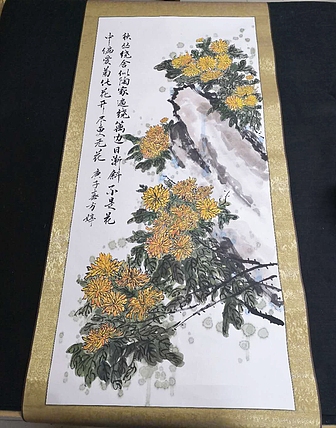 秋丛绕舍似陶家遍绕篱边日渐斜不是花
中偏爱菊此花开尽更无花庚子春方婷